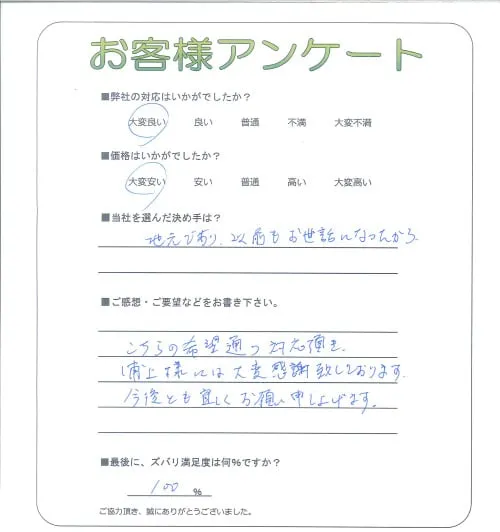 お客様アンケート
■弊社の対応はいかがでしたか?
大変良い 良い 普通 不満 大変不満
■価格はいかがでしたか?
大変安い 安い 普通 高い 大変高い
■当社を選んだ決め手は?
地元であり、以前もお世話になったから。
■ご感想・ご要望などをお書き下さい。
こちらの希望通り対応頂き、
浦上様には大変感謝致しております。
今後とも宜しくお願い申し上げます。
■最後に、ズバリ満足度は何%ですか?
100 %
ご協力頂き、誠にありがとうございました。